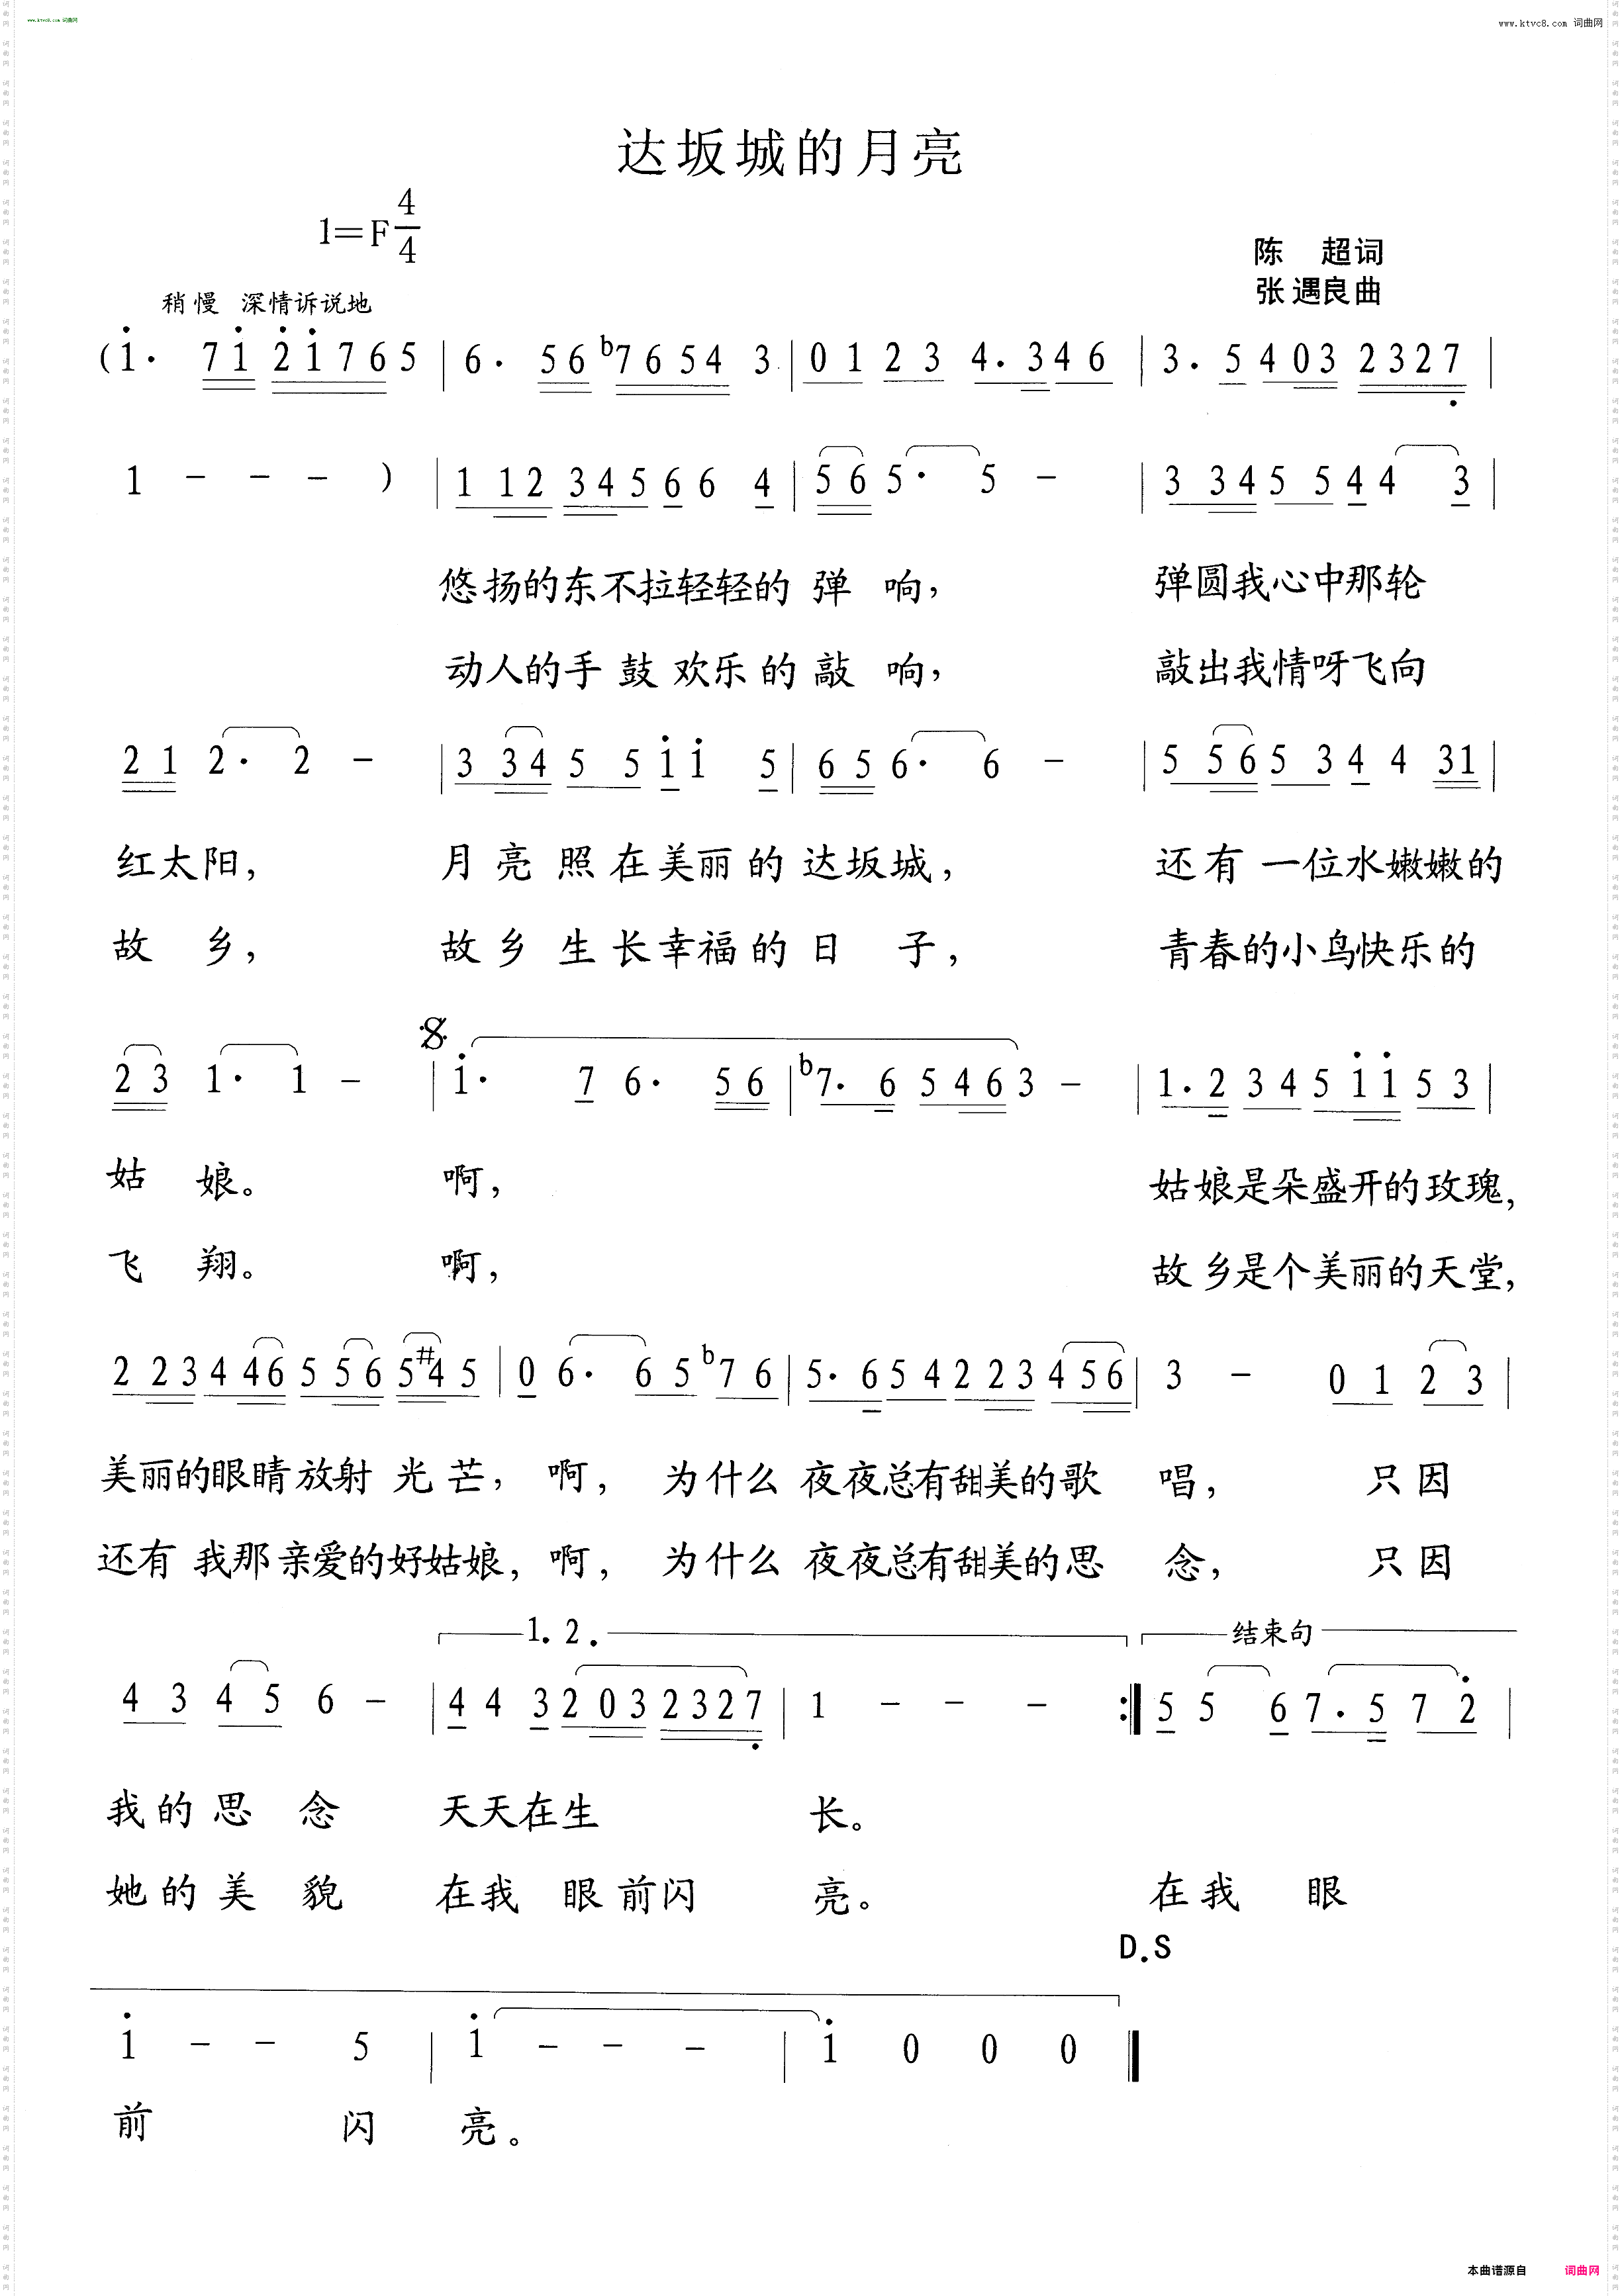 www.ktvc8.com 词曲网
www.ktvc8.com 词曲网
达坂城的月亮
1=F 4/4
陈 超词
张遇良曲
稍慢 深情诉说地
(i· 7i 2i765 | 6· 56 b7654 3 | 01 23 4·346 | 3·5 403 2327 |
1 - - - ) | 1 12 3456 6 4 | 56 5· 5 - | 3 34 5 54 4 3 |
悠扬的东不拉轻轻的弹 响， 弹圆我心中那轮
动人的手鼓欢乐的敲 响， 敲出我情呀飞向
21 2· 2 - | 3 34 5 5i i 5 | 65 6· 6 - | 5 56 5 34 4 31 |
红太阳， 月亮照在美丽的达坂城， 还有一位水嫩嫩的
故 乡， 故乡生长幸福的日 子， 青春的小鸟快乐的
23 1· 1 - | i· 7 6· 56 | b7· 6 5463 - | 1·2 345ii53 |
姑 娘。 啊， 姑娘是朵盛开的玫瑰，
飞 翔。 啊， 故乡是个美丽的天堂，
2 23 4 46 5 56 5#45 | 0 6· 65 b76 | 5·654 2 23 456 | 3 - 01 23 |
美丽的眼睛放射光芒， 啊， 为什么夜夜总有甜美的歌 唱， 只因
还有我那亲爱的好姑娘， 啊， 为什么夜夜总有甜美的思 念， 只因
1. 2. 结束句
43 45 6 - | 4 4 3 2 03 2327 | 1 - - - :| 5 5 6 7·5 72 |
我的思 念 天天在生 长。
她的美 貌 在我眼前闪 亮。 在我 眼
D.S
i - - 5 | i - - - | i 0 0 0 |
前 闪 亮。
本曲谱源自 词曲网